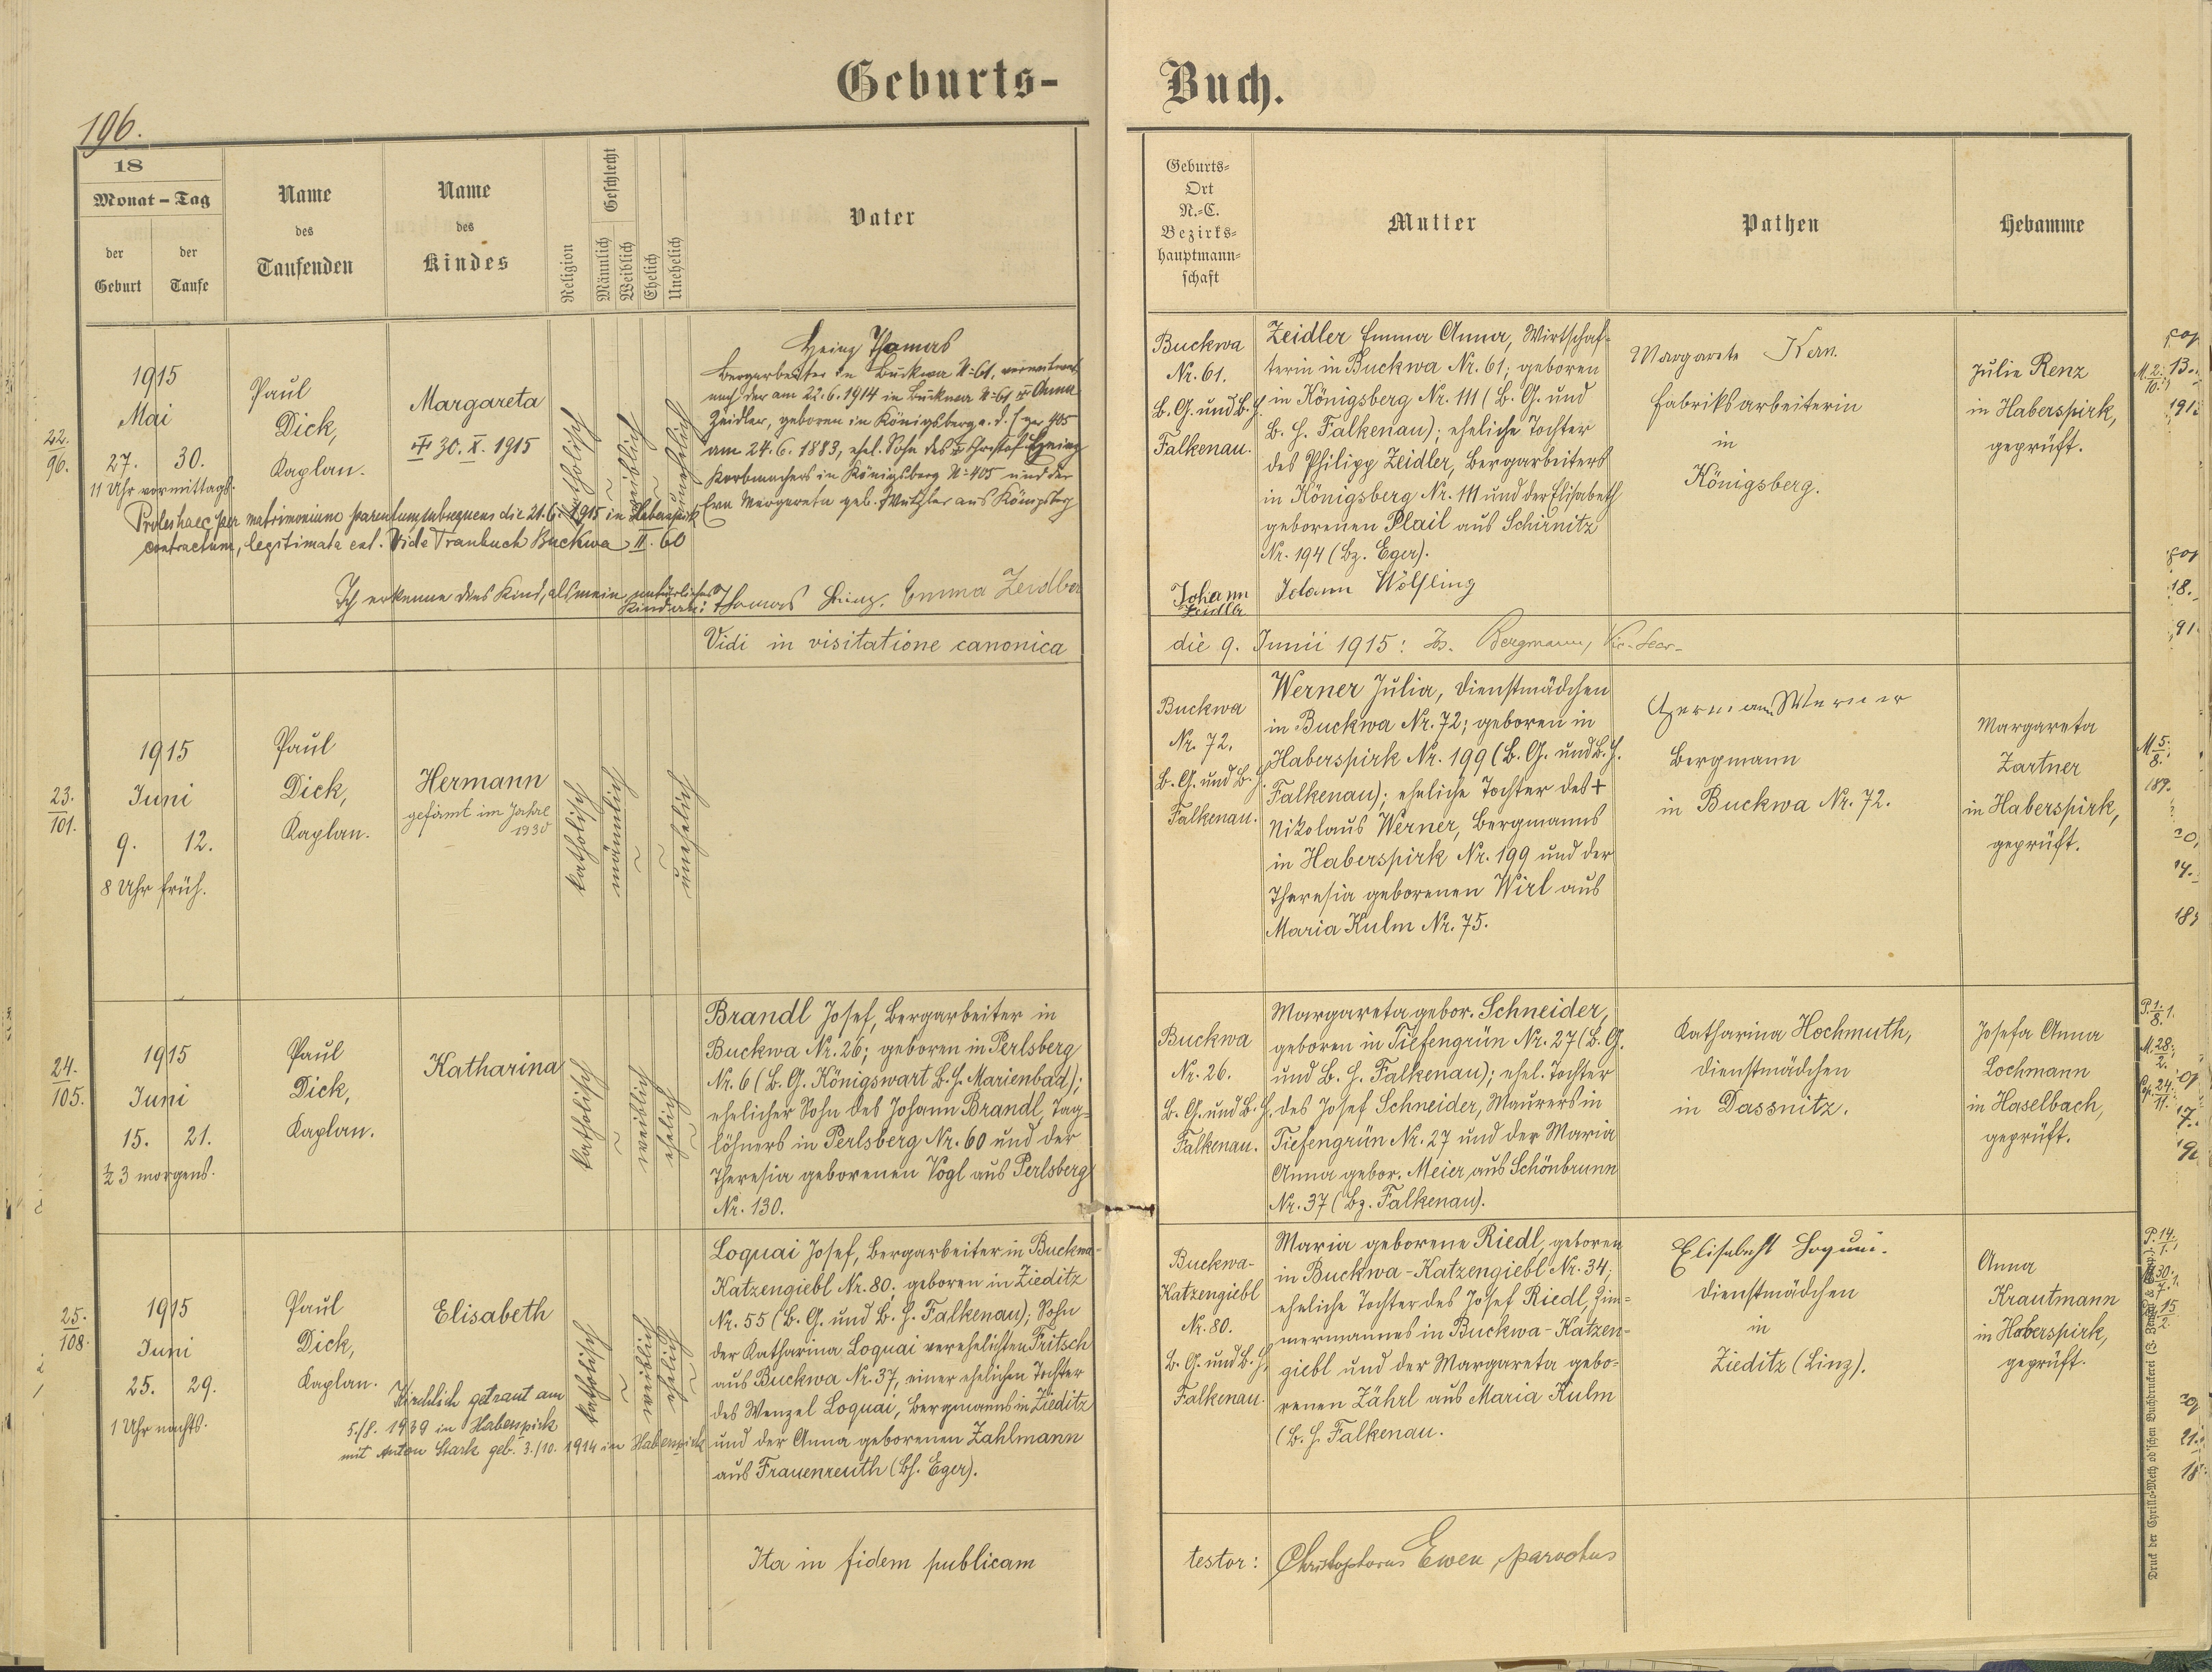 Geburts-
Buch.
196.
18
Monat - Tag
der Geburt
der Taufe
Name
des
Taufenden
Name
des
Kindes
Religion
Geschlecht
Männlich
Weiblich
Ehelich
Unehelich
Vater
Geburts-
Ort
N.-C.
Bezirks-
hauptmann-
schaft
Mutter
Pathen
Hebamme
22.
96.
1915
Mai
27. 30.
11 Uhr vormittags.
Paul
Dick,
Kaplan.
Margareta
30. X. 1915
katholisch
weiblich
unehelich
Heinz Thomas
Bergarbeiter in Buckwa N: 61,
nach der am 22. 6. 1914 in Buckwa N: 61 Anna
Zeidler, geboren in Königsberg a. d. 405
am 24. 6. 1883, ehel. Sohn des Christof Heinz
Korbmachers in Königsberg N: 405 und der
Margareta geb. aus Königsberg
Proles haec per matrimonium parentum subsequens die 21. 6. 1915 in Haberspirk
contractum, legitimata est. Vide Traubuch Buckwa II. 60
Ich erkenne dies Kind, als mein natürliches
Kind an: Thomas Heinz. Emma Zeidler
Buckwa
Nr. 61.
B. G. und B. H.
Falkenau.
Zeidler Emma Anna, Wirtschaf-
terin in Buckwa Nr. 61; geboren
in Königsberg Nr. 111 (B. G. und
B. H. Falkenau); eheliche Tochter
des Philipp Zeidler, Bergarbeiters
in Königsberg Nr. 111 und der Elisabeth
geborenen Plail aus Schirnitz
Nr. 194 (Bz. Eger).
Johann
Zeidler
Johann Wölfling
Margarete Kern
Fabriksarbeiterin
in
Königsberg.
Julie Renz
in Haberspirk,
geprüft.
Vidi in visitatione canonica
die 9. Junii 1915: Js. Bergmann,
23.
101.
1915
Juni
9. 12.
8 Uhr früh.
Paul
Dick,
Kaplan.
Hermann
gefirmt im Jahre
1930
katholisch
männlich
unehelich
Buckwa
Nr. 72.
B. G. und B. H.
Falkenau.
Werner Julia, Dienstmädchen
in Buckwa Nr. 72; geboren in
Haberspirk Nr. 199 (B. G. und B. H.
Falkenau); eheliche Tochter des +
Nikolaus Werner, Bergmanns
in Haberspirk Nr. 199 und der
Theresia geborenen Wirl aus
Maria Kulm Nr. 75.
Hermann Werner
Bergmann
in Buckwa Nr. 72.
Margareta
Zartner
in Haberspirk,
geprüft.
24.
105.
1915
Juni
15. 21.
½ 3 morgens.
Paul
Dick,
Kaplan.
Katharina
katholisch
weiblich
ehelich
Brandl Josef, Bergarbeiter in
Buckwa Nr. 26; geboren in Perlsberg
Nr. 6 (B. G. Königswart B. H. Marienbad);
ehelicher Sohn des Johann Brandl, Tag-
löhners in Perlsberg Nr. 60 und der
Theresia geborenen Vogl aus Perlsberg
Nr. 130.
Buckwa
Nr. 26.
B. G. und B. H.
Falkenau.
Margareta gebor. Schneider,
geboren in Tiefengrün Nr. 27 (B. G.
und B. H. Falkenau); ehel. Tochter
des Josef Schneider, Maurers in
Tiefengrün Nr. 27 und der Maria
Anna gebor. Meier aus Schönbrunn
Nr. 37 (Bz. Falkenau).
Katharina Hochmuth,
Dienstmädchen
in Dassnitz.
Josefa Anna
Lochmann
in Haselbach,
geprüft.
25.
108.
1915
Juni
25. 29.
1 Uhr nachts.
Paul
Dick,
Kaplan.
Elisabeth
Kirchlich getraut am
5./8. 1939 in Haberspirk
mit Anton Stark geb. 3./10. 1914 in Haberspirk
katholisch
weiblich
ehelich
Loquai Josef, Bergarbeiter in Buckwa-
Katzengiebl Nr. 80; geboren in Zieditz
Nr. 55 (B. G. und B. H. Falkenau); Sohn
der Katharina Loquai verehelichten Fritsch
aus Buckwa Nr. 37, einer ehelichen Tochter
des Wenzel Loquai, Bergmanns in Zieditz
und der Anna geborenen Zahlmann
aus Frauenreuth (Bh. Eger).
Buckwa-
Katzengiebl
Nr. 80.
B. G. und B. H.
Falkenau.
Maria geborene Riedl, geboren
in Buckwa-Katzengiebl Nr. 34;
eheliche Tochter des Josef Riedl, Zim-
mermannes in Buckwa-Katzen-
giebl und der Margareta gebo-
renen Zährl aus Maria Kulm
(B. H. Falkenau.
Elisabeht Loquai.
Dienstmädchen
in
Zieditz (Linz).
Anna
Krautmann
in Haberspirk,
geprüft.
Ita in fidem publicam
testor: Christophorus Ewen, parochus